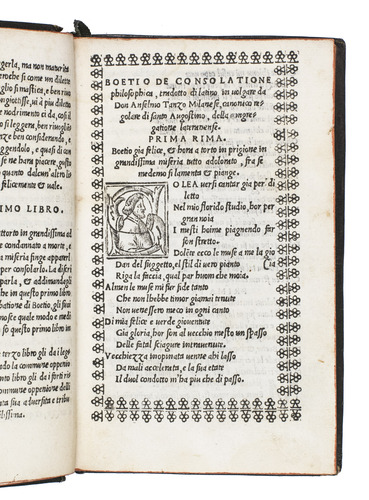 ggerla, ma non maturità
eroche si come un dilette
glio si mastica, e ben rimu
e ui à piu dilette
nodrimento ci da, così il
si leggera, ben rimuglio
enze ben considerando, e
eggendolo, e quasi di con
se ne haura piacere, gusto
quanto dalcun' altro li
felicemente & uale.
IMO LIBRO.
attorto in grandissima ad
e condannato a morte, e
miseria finge appareri
per consolarlo. La discri
& adimandagli
che in questo primo libro
batione di Boetio, gli con
nosce quale modo e medi
so questo primo libro in
e terzo libro gli da i lege
la commune oppenio
libro gli da i forti ri
commune oppenione della
sua aduersita e tribu
lissima.
BOETIO DE CONSOLATIONE
philosophica, tradotto di latino, in uolgare da
Don Anselmo Tanzo Milanese, canonico re
golare di santo Augostino, della congre
gatione lateranense.
PRIMA RIMA.
Boetio gia felice, & hora a torto in prigione in
grandissima miseria tutto adolorato, fra se
medemo si lamenta & piange.
O LEA uersi cantar gia per di
letto
Nel mio florido studio, hor per
gran noia
I mesti boime piagnendo far
son stretto.
Dolete ecco le muse a me la gio
Dan del suggetto, el stil di uero pianto
Riga la faccia, qual par huom che moia.
Almen le muse mi fur fide tanto
Che non l'hebbe timor giamai tenute
Non uenessero meco in ogni canto
Di mia felice e uerde giouentute
Gia gloria, hor son al uecchio mesto un spasso
Delle fatal sciagure interuenute.
Vecchiezza inopinata uenne ahi lasso
Da mali accelerata, e la sua etate
Il duol condotto m'ha piu che di passo.